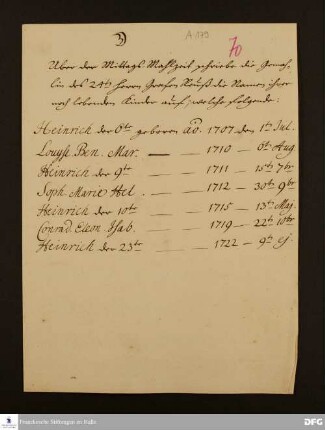 3)
A 179
70
Über der Mittags Mahlzeit schriebe die Gemah-
lin des 24ten Herrn Grafen Reuß die Namen ihrer
noch lebenden Kinder auf, welche folgende:
Heinrich der 6te geboren aō. 1707 den 1ten Jul.
Louyse Ben. Mar. — 1710 — 6t Aug
Heinrich der 9te — 1711 — 15ten 7br
Soph. Marie Hel. — 1712 — 30ten 9br
Heinrich der 10te — 1715 — 13ten Maj.
Conrad. Eleon. Isab. — 1719 — 22t 10br
Heinrich der 23te — 1722 — 9ten ej.
Franckesche Stiftungen zu Halle
DFG